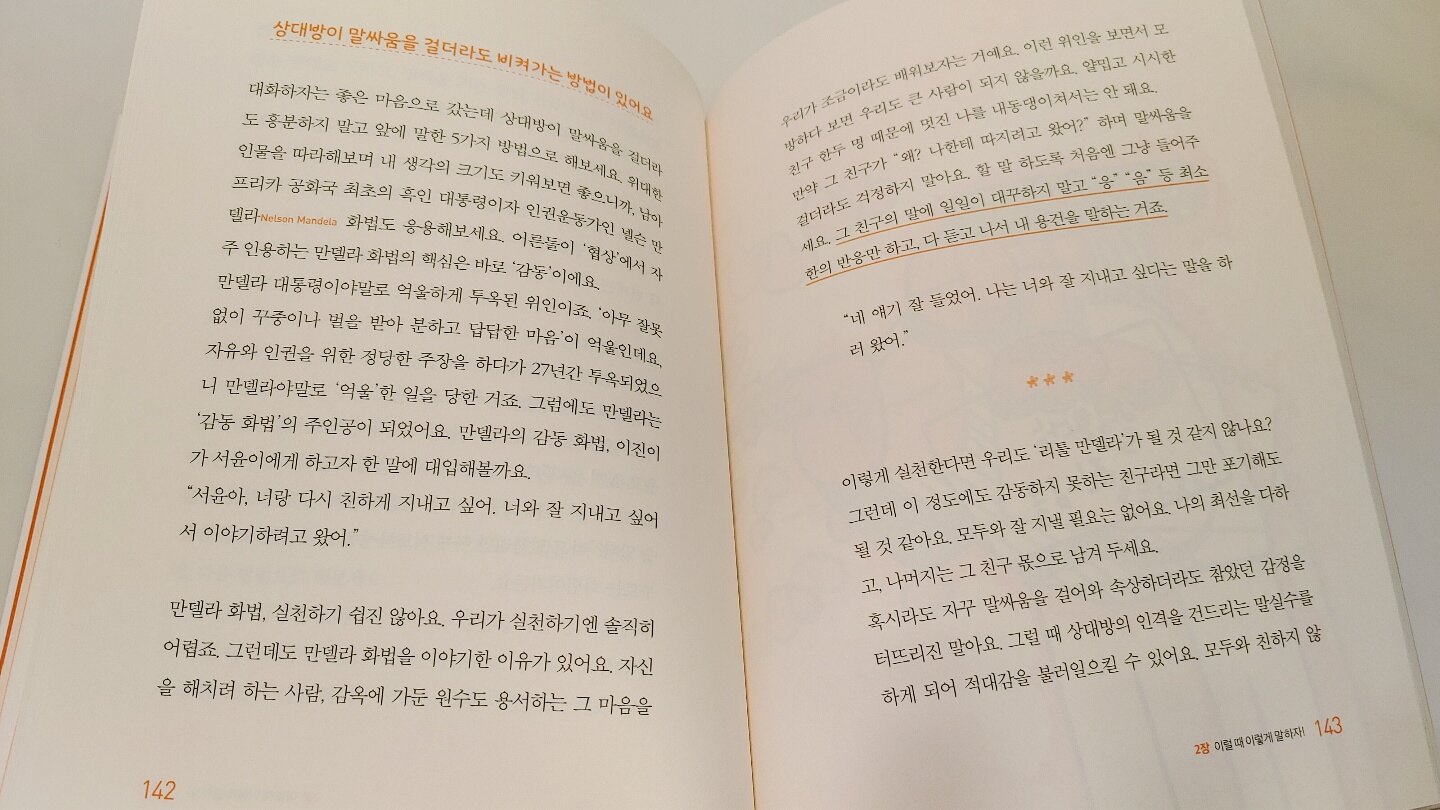 상대방이 말싸움을 걸더라도 비켜가는 방법이 있어요
대화하자는 좋은 마음으로 갔는데 상대방이 말싸움을 걸더라
도 흥분하지 말고 앞에 말한 5가지 방법으로 해보세요. 위대한
인물을 따라해보며 내 생각의 크기도 키워보면 좋으니까, 남아
프리카 공화국 최초의 흑인 대통령이자 인권운동가인 넬슨 만
델라Nelson Mandela 화법도 응용해보세요. 어른들이 ‘협상’에서 자
주 인용하는 만델라 화법의 핵심은 바로 ‘감동’이에요.
만델라 대통령이야말로 억울하게 투옥된 위인이죠. ‘아무 잘못
없이 꾸중이나 벌을 받아 분하고 답답한 마음’이 억울인데요,
자유와 인권을 위한 정당한 주장을 하다가 27년간 투옥되었으
니 만델라야말로 ‘억울’한 일을 당한 거죠. 그럼에도 만델라는
‘감동 화법’의 주인공이 되었어요. 만델라의 감동 화법, 이진이
가 서윤이에게 하고자 한 말에 대입해볼까요.
“서윤아, 너랑 다시 친하게 지내고 싶어. 너와 잘 지내고 싶어
서 이야기하려고 왔어.”
만델라 화법, 실천하기 쉽진 않아요. 우리가 실천하기엔 솔직히
어렵죠. 그런데도 만델라 화법을 이야기한 이유가 있어요. 자신
을 해치려 하는 사람, 감옥에 가둔 원수도 용서하는 그 마음을
142
우리가 조금이라도 배워보자는 거예요. 이런 위인을 보면서 모
방하다 보면 우리도 큰 사람이 되지 않을까요. 얄밉고 시시한
친구 한두 명 때문에 멋진 나를 내동댕이쳐서는 안 돼요.
만약 그 친구가 “왜? 나한테 따지려고 왔어?” 하며 말싸움을
걸더라도 걱정하지 말아요. 할 말 하도록 처음엔 그냥 들어주
세요. 그 친구의 말에 일일이 대꾸하지 말고 “응” “음” 등 최소
한의 반응만 하고, 다 듣고 나서 내 용건을 말하는 거죠.
“네 얘기 잘 들었어. 나는 너와 잘 지내고 싶다는 말을 하
러 왔어.”
이렇게 실천한다면 우리도 ‘리틀 만델라’가 될 것 같지 않나요?
그런데 이 정도에도 감동하지 못하는 친구라면 그만 포기해도
될 것 같아요. 모두와 잘 지낼 필요는 없어요. 나의 최선을 다하
고, 나머지는 그 친구 몫으로 남겨 두세요.
혹시라도 자꾸 말싸움을 걸어와 속상하더라도 참았던 감정을
터뜨리진 말아요. 그럴 때 상대방의 인격을 건드리는 말실수를
하게 되어 적대감을 불러일으킬 수 있어요. 모두와 친하지 않
2장 이럴 때 이렇게 말하자! 143